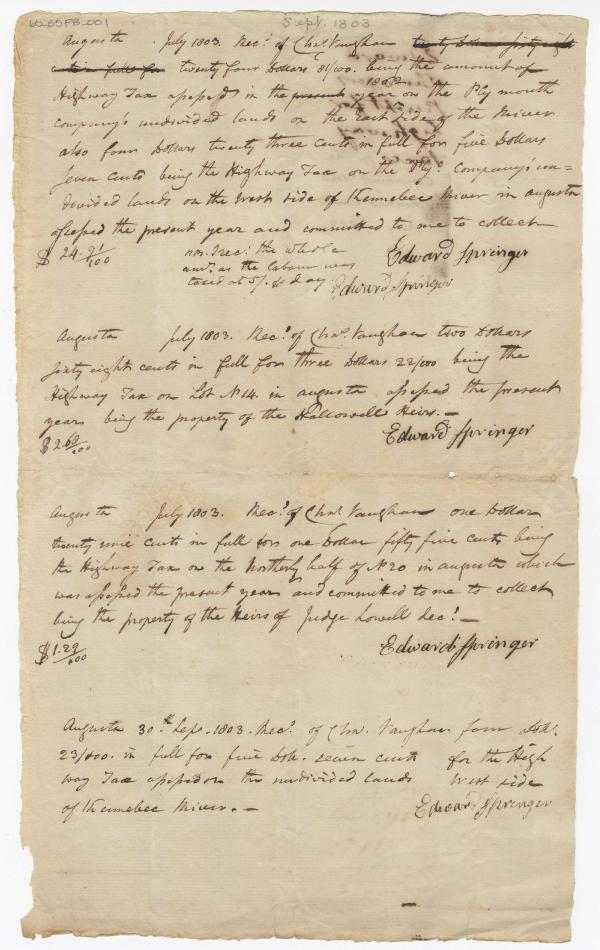 Sept. 1803
Augusta July 1803. Rec.d of Cha.s Vaughan twenty Dollars sixty eight
cents in full for twenty four Dollars 91/100. being the amount of
Highway Tax assessed in the present 1802 year on the Plymouth
company's undivided lands on the East side of the River
also four Dollars twenty three cents in full for five Dollars
seven cents being the Highway Tax on the Ply.o Company's un=
divided lands on the West side of Kennebec River in augusta
assessed the present year and committed to me to collect
$ 24.91/100 the whole Edward Springer
am.t as the labour was
at 5/. day Edward Springer
Augusta July 1803. Rec.d of Cha.s Vaughan two Dollars
sixty eight cents in full for three Dollars 22/100 being the
Highway Tax on Lot N 14. in augusta assessed the present
years being the property of the Hallowell Heirs. —
$ 2.68/100 Edward Springer
Augusta July 1803. Rec.d of Cha.s Vaughan one Dollar
twenty nine cents in full for one Dollar fifty five cents being
the Highway Tax on the Northerly half of N 20 in augusta which
was assessed the present year and committed to me to collect
being the property of the Heirs of Judge Lowell dec.d —
$ 1.29/100 Edward Springer
Augusta 30.th Sep. 1803. Rec.d of Cha.s Vaughan four Dolls.
23/100. in full for five Dolls. seven cents for the High
way Tax assessed on the undivided lands West side
of Kennebec River. — Edward Springer